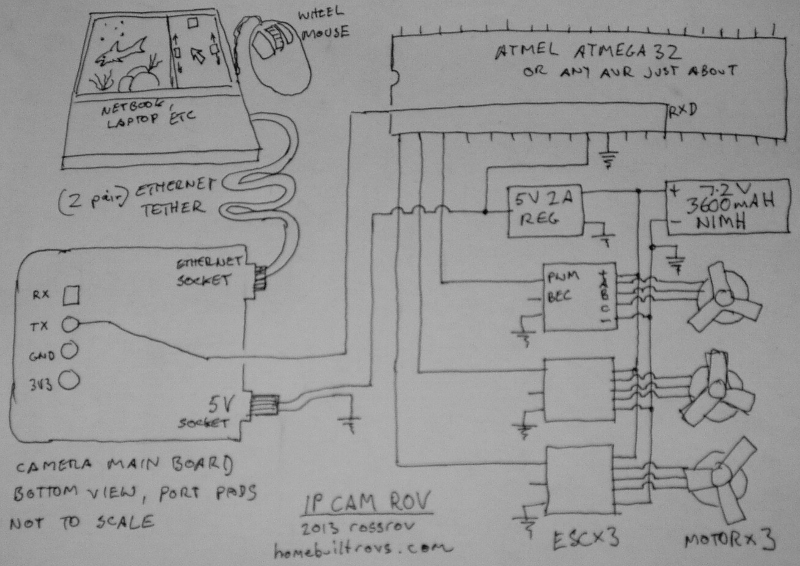 WHEEL
MOUSE
NETBOOK,
LAPTOP ETC
(2 pair) ETHERNET
TETHER
ATMEL ATMEGA 32
OR ANY AVR JUST ABOUT
RXD
5V 2A
REG
+ 7.2V
3600mAH
- NIMH
ETHERNET
SOCKET
RX
TX
GND
3V3
5V
SOCKET
PWM +
A
BEC B
C
-
CAMERA MAIN BOARD
BOTTOM VIEW, PORT PADS
NOT TO SCALE
IP CAM ROV
2013 rossrov
homebuiltrovs.com
ESCX3
MOTORX3